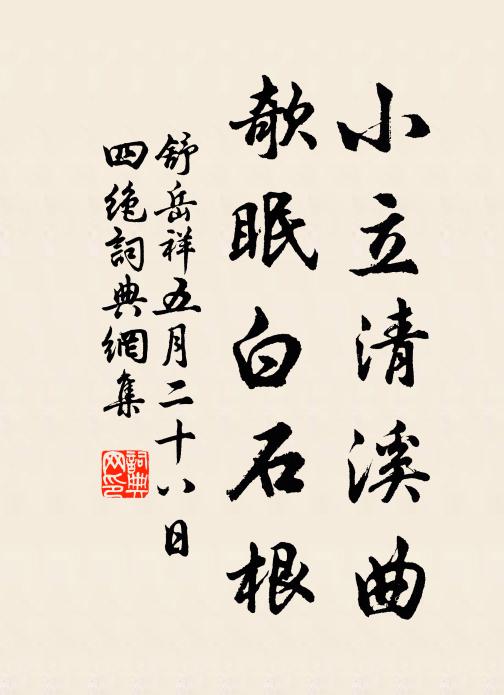 小立清溪曲
欹眠白石根
舒岳祥五月二十八日
四绝詞典網集
詞典
网印